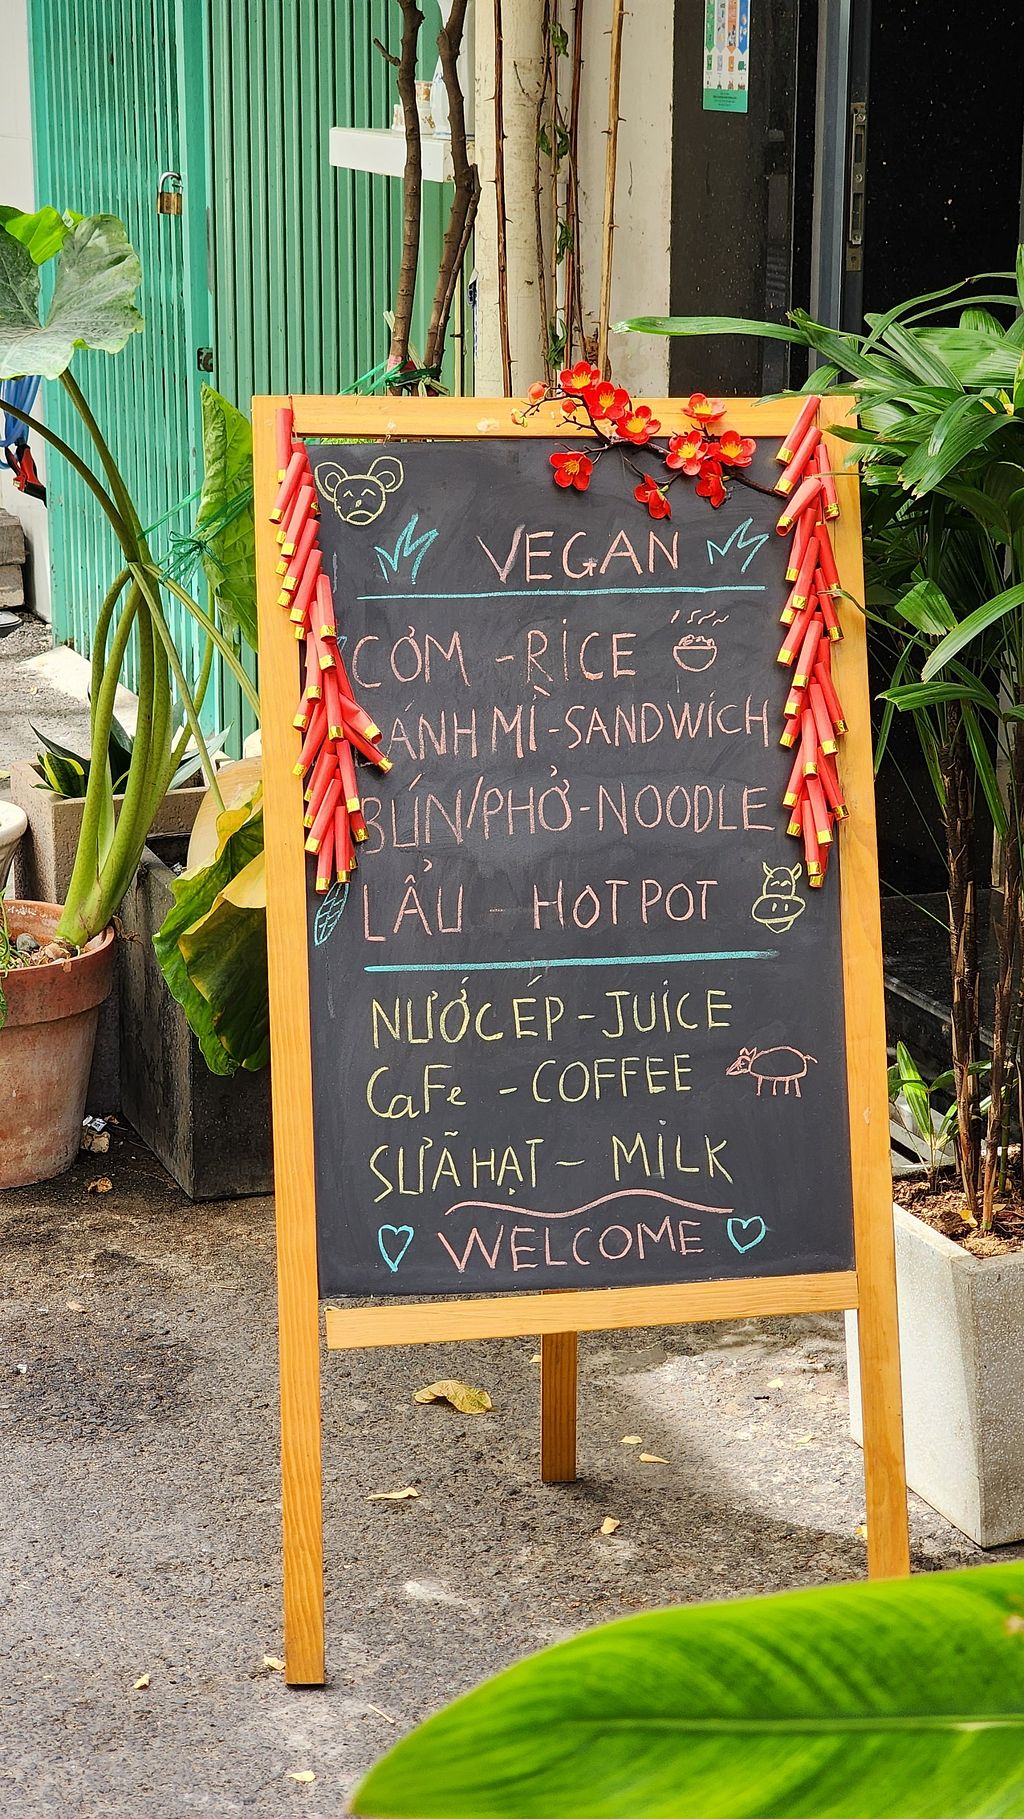 VEGAN
CƠM - RICE
ÁNH MÌ - SANDWICH
BÚN/PHỞ - NOODLE
LẨU - HOTPOT
NƯỚC ÉP - JUICE
CaFe - COFFEE
SỮA HẠT - MILK
WELCOME